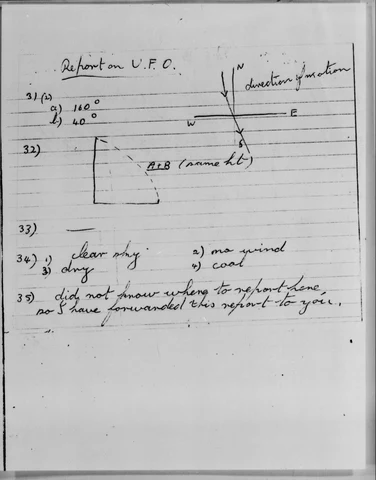 Report on U.F.O.
N
direction of motion
31 (2)
a) 160°
b) 40°
W E
S
32)
A+B (same ht)
33) —
34) 1) clear sky. 2) no wind
3) dry 4) cool
35) did not know where to report here,
so I have forwarded this report to you.